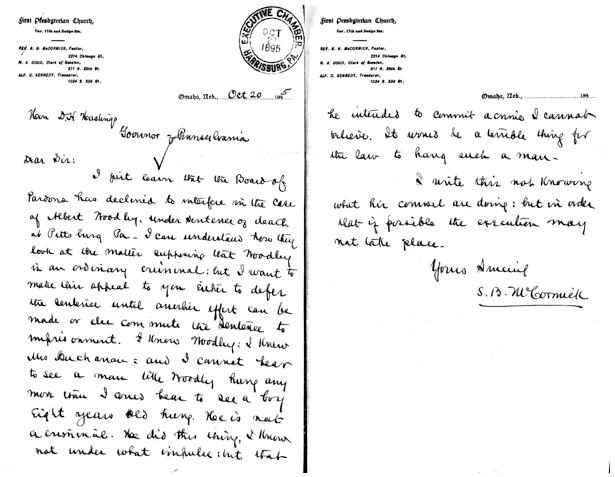 First Presbyterian Church,
Cor. 17th and Dodge Sts.
REV. S. B. McCORMICK, Pastor,
2214 Chicago St.
M. A. DOUD, Clerk of Session,
811 N. 25th St.
ALF. C. KENNEDY, Treasurer,
1024 S. 32d St.
EXECUTIVE CHAMBER
OCT
1895
HARRISBURG, PA.
Omaha, Neb., Oct 20 1895
Hon D.H Hastings
Governor of Pennsylvania
Dear Sir:
I just learn that the Board of
Pardons has declined to interfere in the case
of Albert Woodley, under sentence of death
at Pittsburg Pa - I can understand how they
look at the matter supposing that Woodley
is an ordinary criminal: but I want to
make this appeal to you either to defer
the sentence until another effort can be
made or else commute the sentence to
imprisonment. I know Woodley: I knew
Mrs Buchanan: and I cannot bear
to see a man like Woodley hung any
more than I could bear to see a boy
eight years old hung. He is not
a criminal. He did this thing, I know
not under what impulse: but that
First Presbyterian Church,
Cor. 17th and Dodge Sts.
REV. S. B. McCORMICK, Pastor,
2214 Chicago St.
M. A. DOUD, Clerk of Session,
811 N. 25th St.
ALF. C. KENNEDY, Treasurer,
1024 S. 32d St.
Omaha, Neb., 189
he intended to commit a crime I cannot
believe. It would be a terrible thing for
the law to hang such a man -
I write this not knowing
what his counsel are doing: but in order
that if possible the execution may
not take place -
Yours
S. B. McCormick